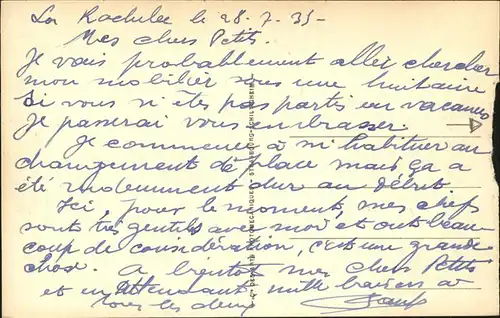 La Rochelle le 28-7-35-
Mes chers Petits.
Je vais probablement aller chercher
mon mobilier sous une huitaine
Si vous n'êtes pas partis en vacances
je passerai vous embrasser.
Je commence à m'habituer au
changement de place mais ça a
été rudement dur au début.
Ici, pour le moment, mes chefs
sont très gentils avec moi et ont beau-
coup de considération, c'est une grande
chose. A bientôt mes chers Petits
et en attendant mille baisers à
tous les deux